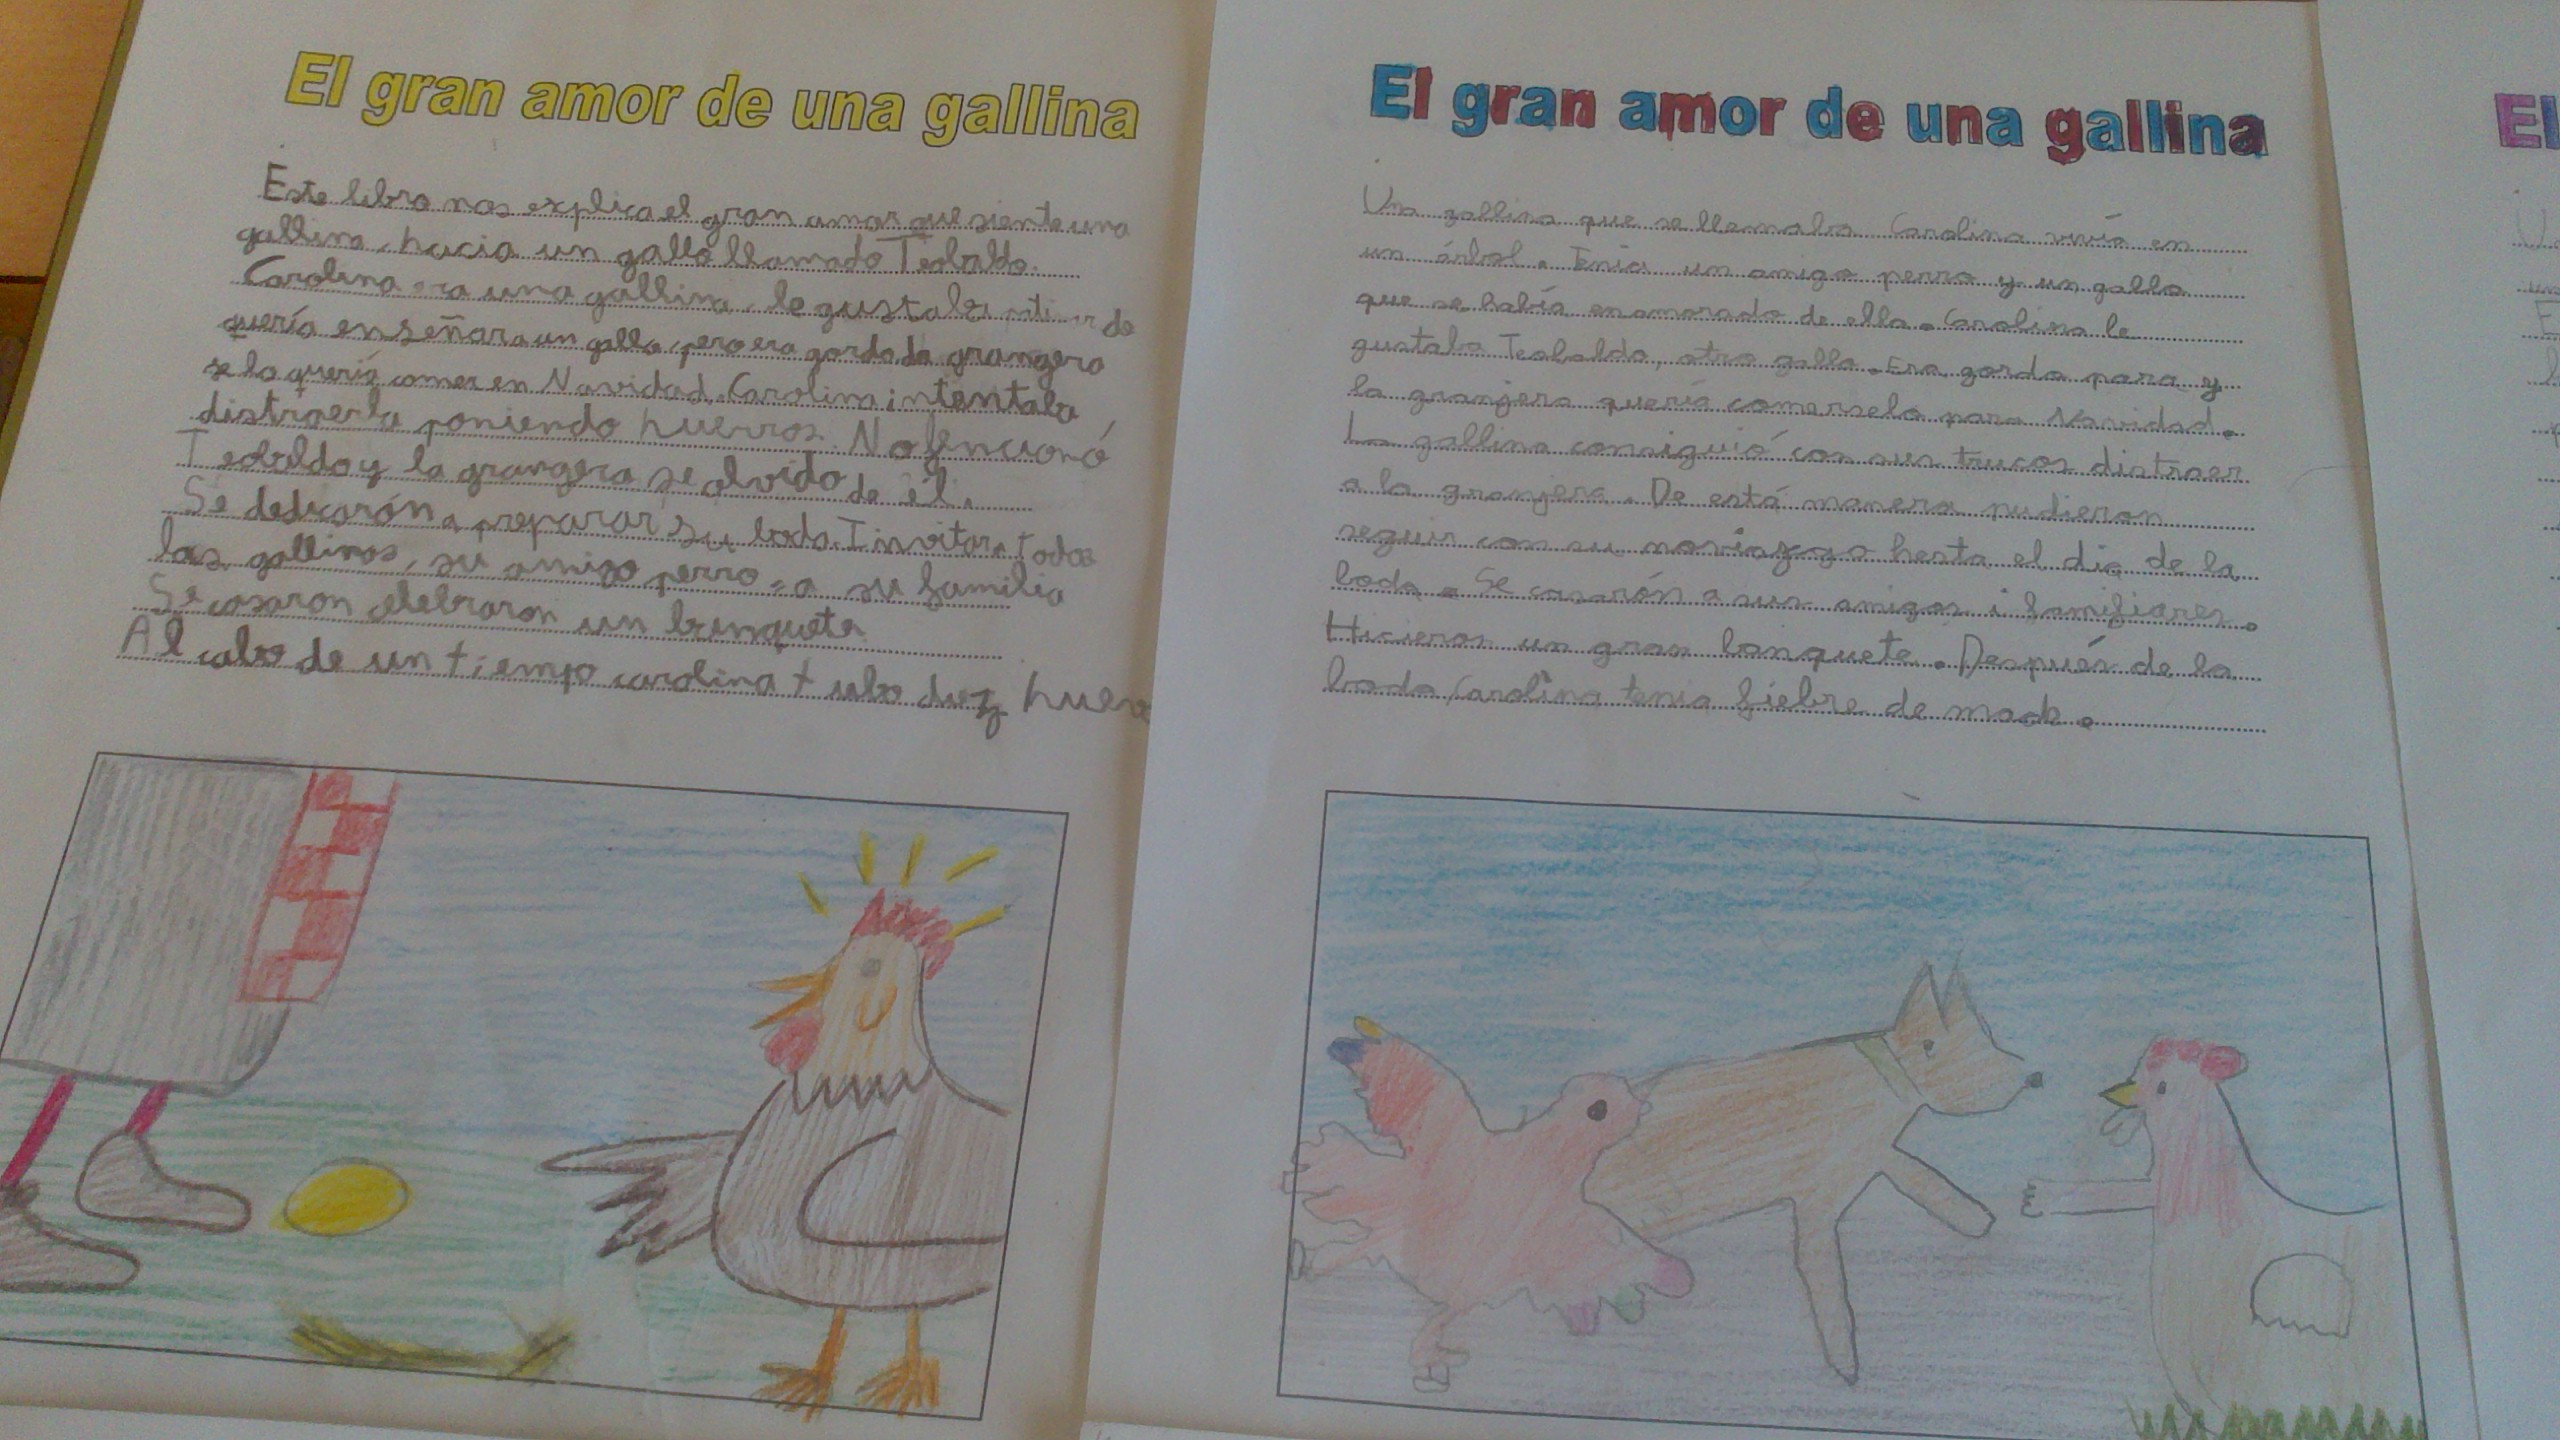 El gran amor de una gallina
Este libro nos explica el gran amor que siente una
gallina, hacia un gallo llamado Teobaldo.
Carolina era una gallina, le gustaba de
quería enseñar a un gallo, pero era gordo da grangera
se lo quería comer en Navidad. Carolina intentaba
distraerla poniendo huerros. No fencionó
Teobaldo y la grangera se olvido de él.
Se dedicarón a preparar su boda. Invitar a todas
las gallinas, su amigo perro a su familia
Se casaron celebraron un banquete
Al cabo de un tiempo carolina tubo diez huevo
El gran amor de una gallina
Una gallina que se llamaba Carolina vivía en
un árbol. Tenia un amigo perro y un gallo
que se había enamorado de ella. Carolina le
gustaba Teobaldo, otro gallo. Era gordo para y
la granjera quería comerselo para Navidad.
La gallina consiguió con sus trucos distraer
a la granjera. De está manera pudieron
seguir con su hasta el dia de la
boda. Se casarón a sus amigos i familiares.
Hicieron un gran banquete. Después de la
boda Carolina tenia fiebre de
El